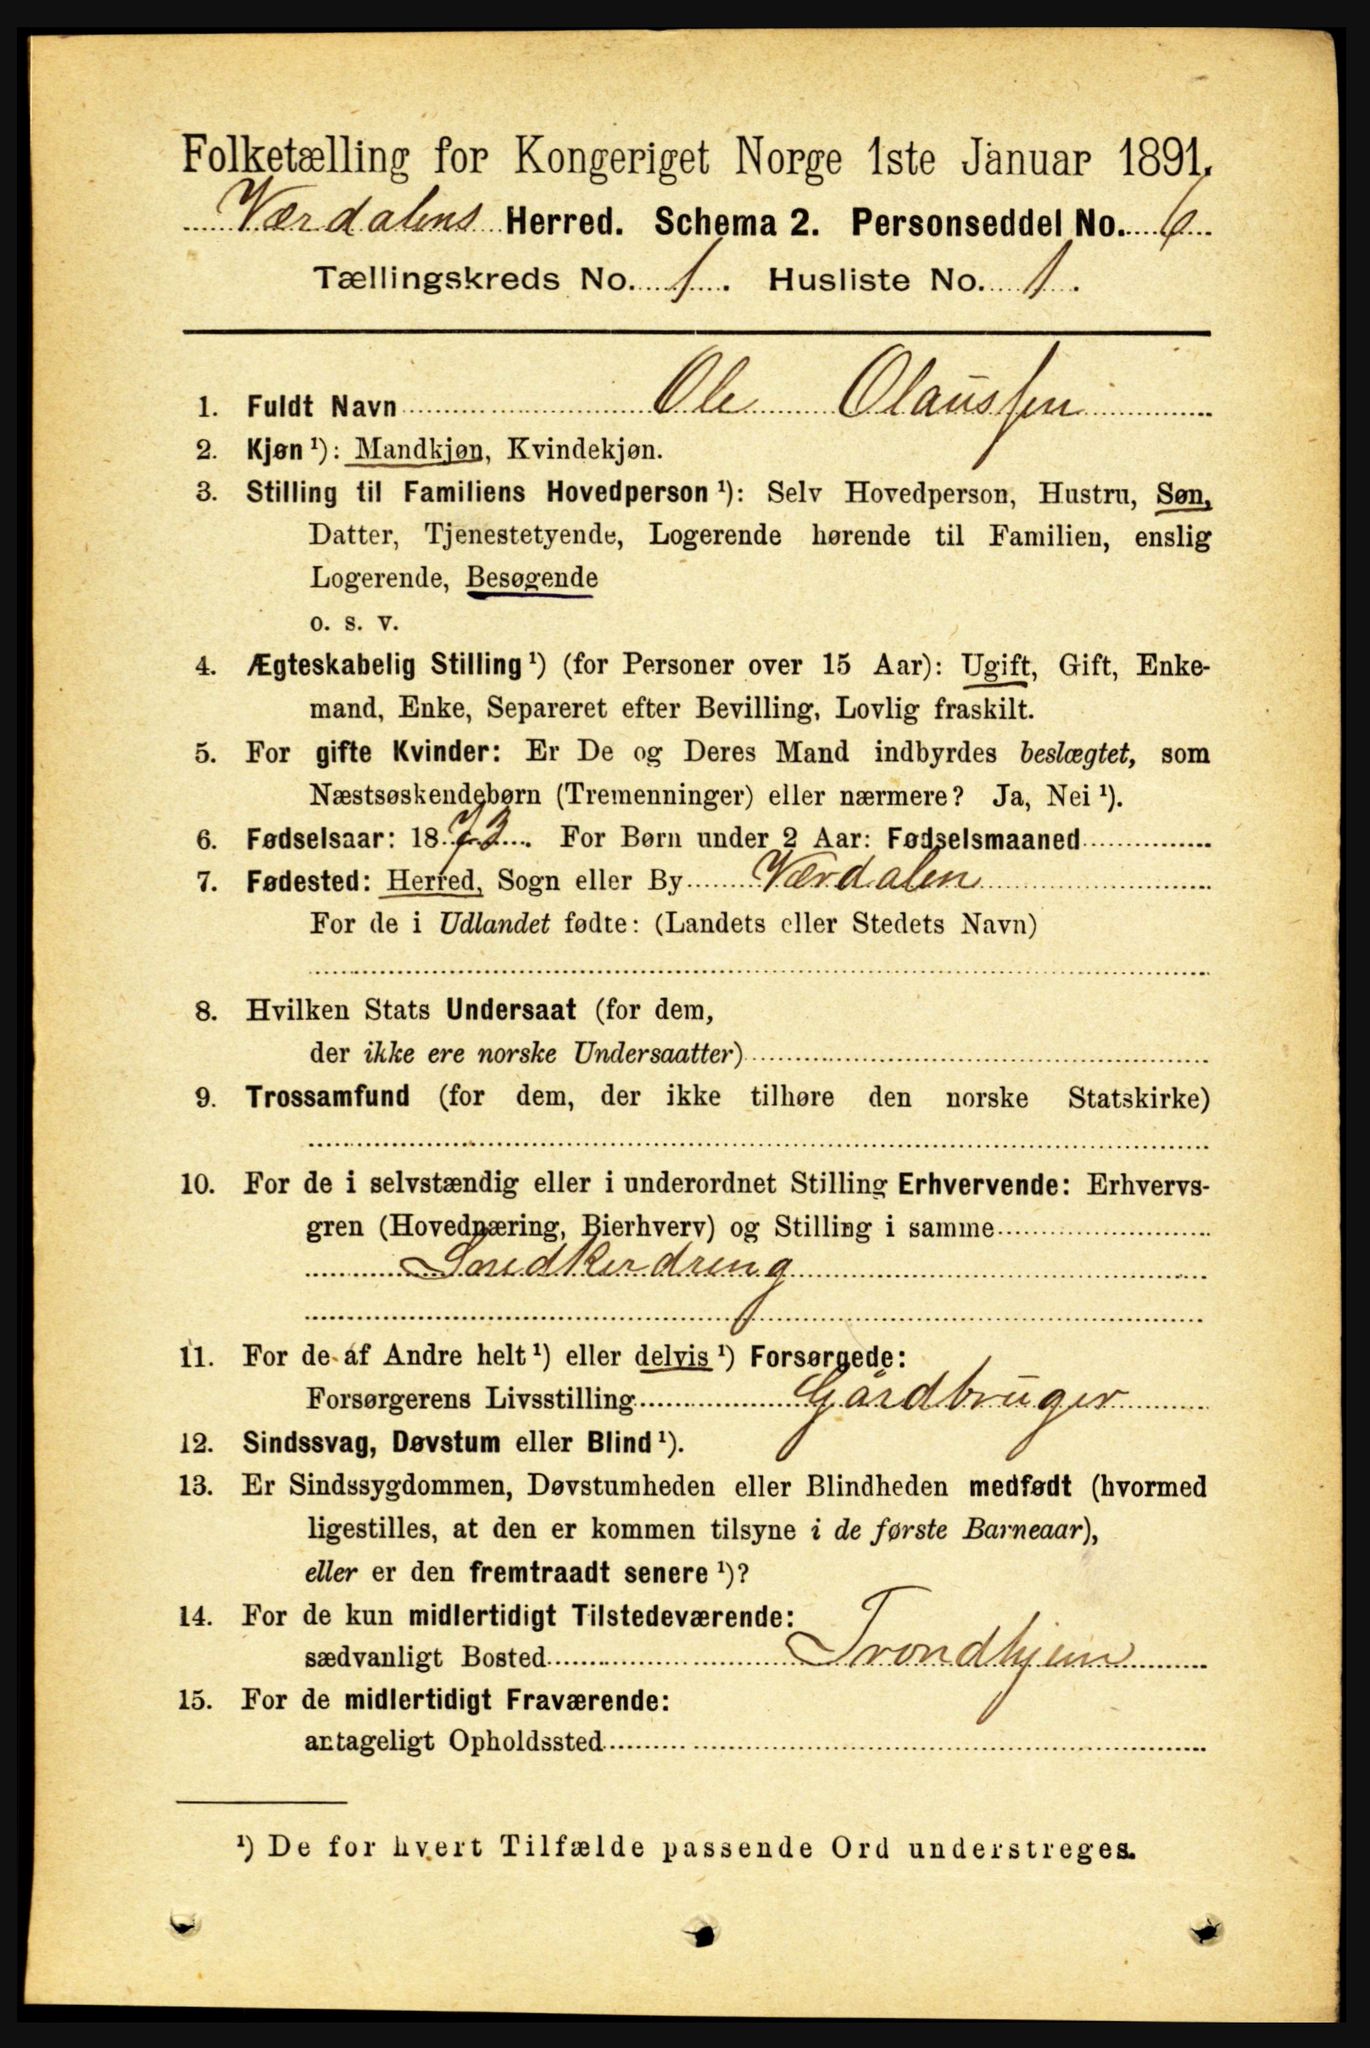 Folketælling for Kongeriget Norge 1ste Januar 1891.
Værdalens Herred. Schema 2. Personseddel No. 6
Tællingskreds No. 1. Husliste No. 1.
1. Fuldt Navn Ole Olaussen
2. Kjøn ¹): Mandkjøn, Kvindekjøn.
3. Stilling til Familiens Hovedperson ¹): Selv Hovedperson, Hustru, Søn,
Datter, Tjenestetyende, Logerende hørende til Familien, enslig
Logerende, Besøgende
o. s. v.
4. Ægteskabelig Stilling ¹) (for Personer over 15 Aar): Ugift, Gift, Enke-
mand, Enke, Separeret efter Bevilling, Lovlig fraskilt.
5. For gifte Kvinder: Er De og Deres Mand indbyrdes beslægtet, som
Næstsøskendebørn (Tremenninger) eller nærmere? Ja, Nei ¹).
6. Fødselsaar: 1873. For Børn under 2 Aar: Fødselsmaaned
7. Fødested: Herred, Sogn eller By Værdalen
For de i Udlandet fødte: (Landets eller Stedets Navn)
8. Hvilken Stats Undersaat (for dem,
der ikke ere norske Undersaatter)
9. Trossamfund (for dem, der ikke tilhøre den norske Statskirke)
10. For de i selvstændig eller i underordnet Stilling Erhvervende: Erhvervs-
gren (Hovednæring, Bierhverv) og Stilling i samme
Snedkerdreng
11. For de af Andre helt ¹) eller delvis ¹) Forsørgede:
Forsørgerens Livsstilling Gårdbruger
12. Sindssvag, Døvstum eller Blind ¹).
13. Er Sindssygdommen, Døvstumheden eller Blindheden medfødt (hvormed
ligestilles, at den er kommen tilsyne i de første Barneaar),
eller er den fremtraadt senere ¹)?
14. For de kun midlertidigt Tilstedeværende:
sædvanligt Bosted Trondhjem
15. For de midlertidigt Fraværende:
antageligt Opholdssted
¹) De for hvert Tilfælde passende Ord understreges.